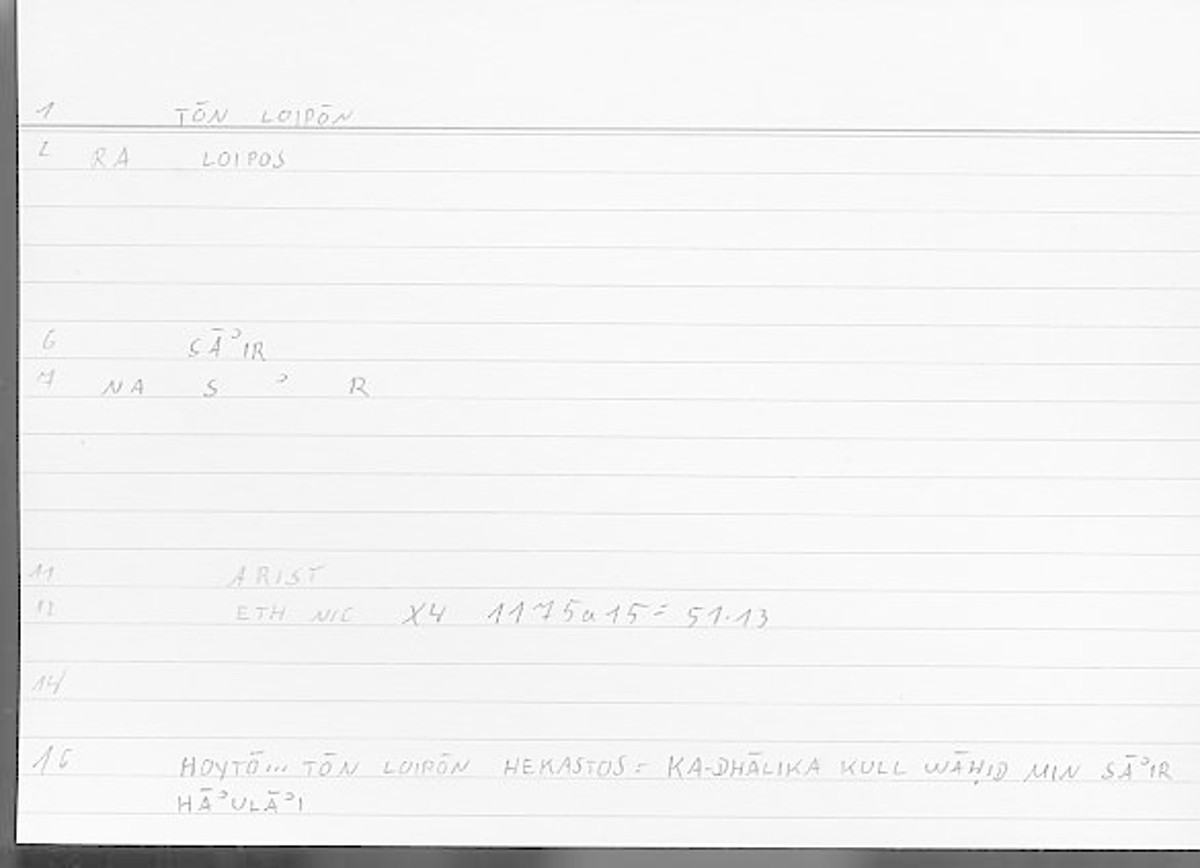 1 TŌN LOIPŌN
2 RA LOIPOS
6 SĀʾIR
7 NA S ʾ R
11 ARIST
12 ETH NIC X4 1175a15 = 51.13
14
15 HOYTŌ... TŌN LOIPŌN HEKASTOS = KA-DHĀLIKA KULL WĀḤID MIN SĀʾIR
HĀʾULĀʾI